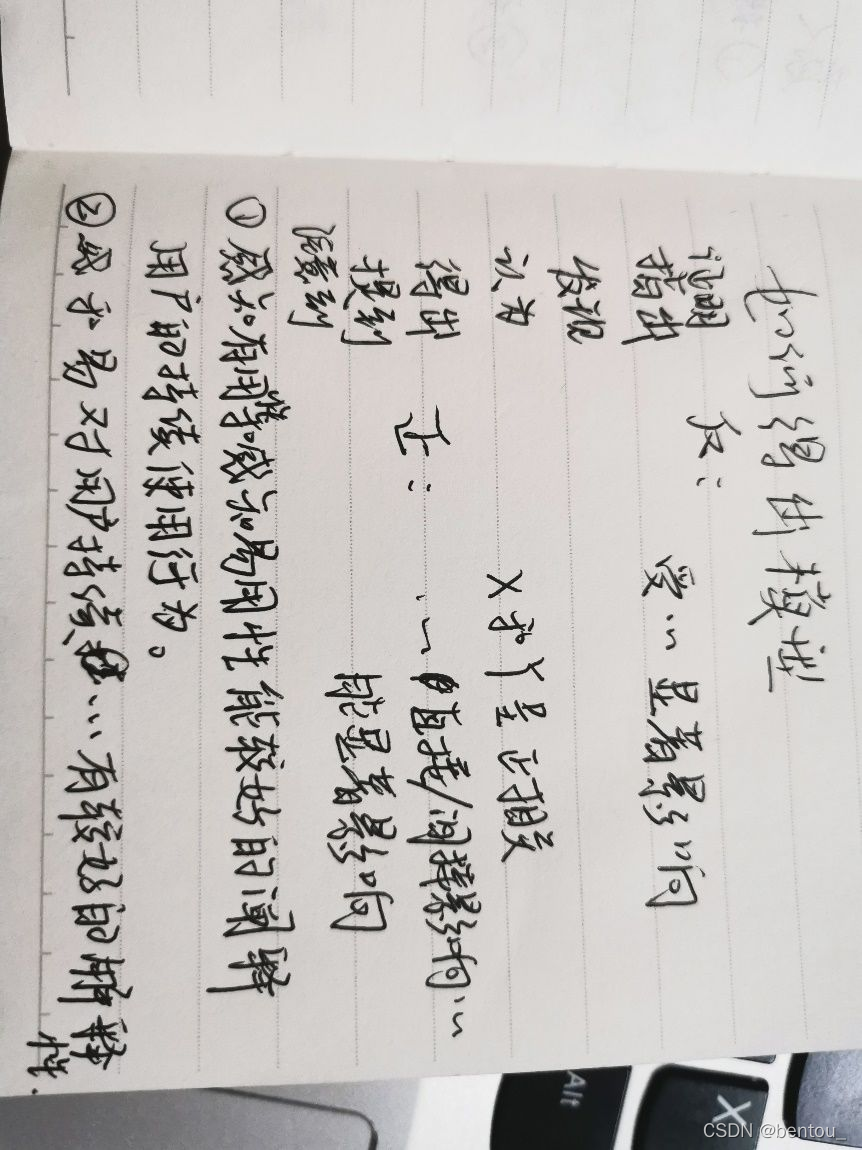 如何得出模型
证明 反：
指出 受…显著影响
发现
认为 X和Y呈正相关
得出 正：…直接/间接影响…
提到 能显著影响
注意到
①感知有用等感知易用性能较好的阐释
用户的持续使用行为。
②感知易对用户持续…有较好的解释
性.
Alt
X
CSDN @bentou_